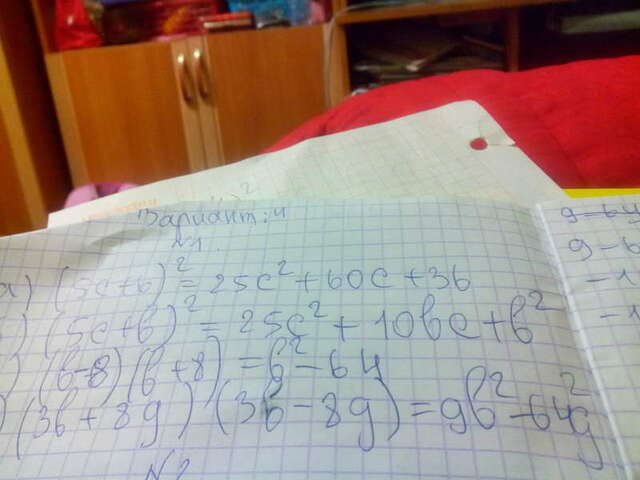 Вариант: 4
№1.
а) (5c+6)² = 25c² + 60c + 36
) (5c+b)² = 25c² + 10bc + b²
) (b-8)(b+8) = b² - 64
) (3b + 8g) (3b - 8g) = 9b² - 64g²
№2
9-64
9-6
-1
-1